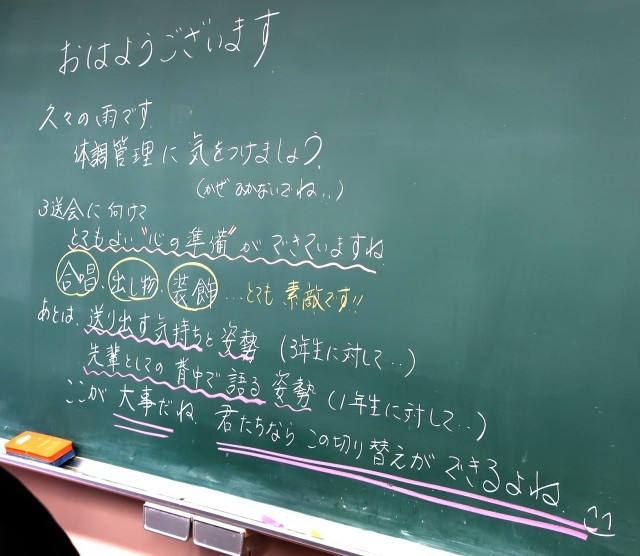 おはようございます
久々の雨です.
体調管理に気をつけましょう.
(かぜひかないでね...)
3送会に向けて
とてもよい"心の準備"ができていますね
合唱.出し物.装飾...とても素敵です!!
あとは、送り出す気持ちと姿勢(3年生に対して...)
先輩としての背中で語る姿勢(1年生に対して...)
ここが大事だね.君たちならこの切り替えができるよね.